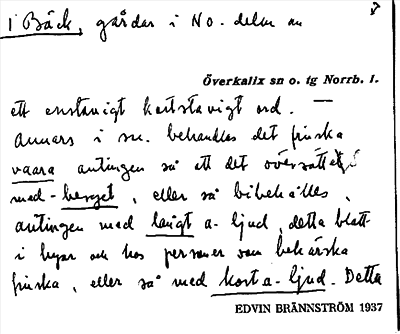 1 Bäck, gårdar i No. delen av
Överkalix sn o. tg Norrb. l.
ett enstavigt kortstavigt ord. —
Annars i sn. behandlas det finska
vaara antingen så att det översättes
med -berget, eller så bibehålles,
antingen med långt a- ljud, detta blott
i byar och hos personer som behärska
finska, eller så med kort a- ljud. Detta
EDVIN BRÄNNSTRÖM 1937